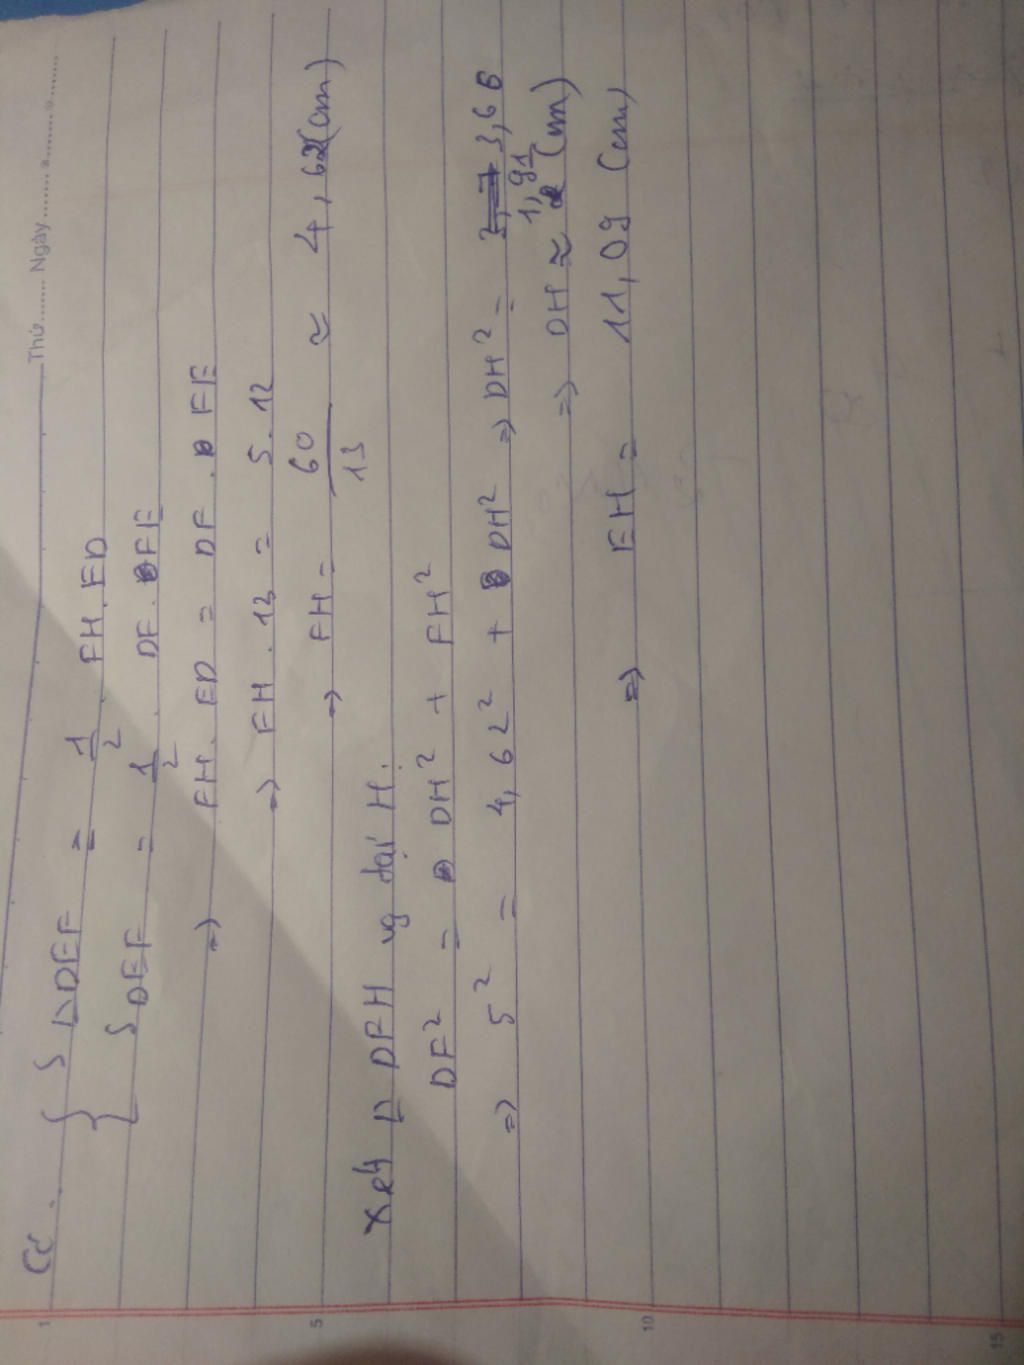 Thứ........ Ngày........
Có:
{ S ΔDEF = 1/2 . FH . ED
S DEF = 1/2 . DF . FE
=> FH . ED = DF . FE
=> FH . 13 = 5 . 12
=> FH = 60/13 ≈ 4,62 (cm)
Xét Δ DFH vg tại H:
DF² = DH² + FH²
=> 5² = 4,62² + DH² => DH² = 3,66
=> DH ≈ 1,91 (cm)
=> EH = 11,09 (cm)
1
5
10
15